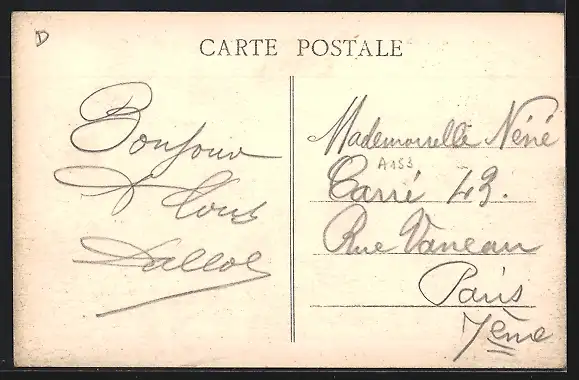 D
CARTE POSTALE
Bonjour
à tous
Mademoiselle Néné
A153
Carré 49.
Rue Vaneau
Paris
7ème